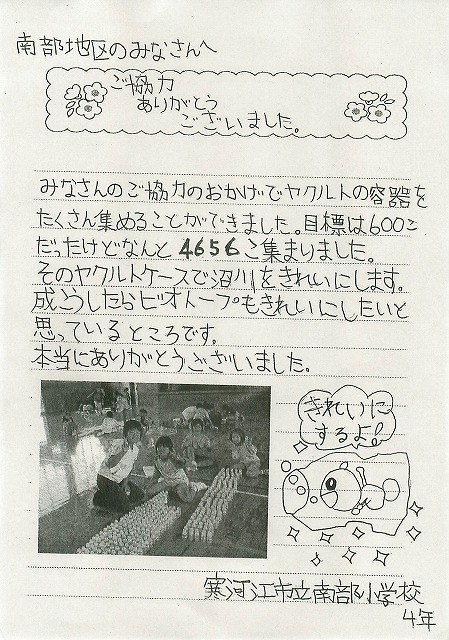 南部地区のみなさんへ
ご協力
ありがとう
ございました。
みなさんのご協力のおかげでヤクルトの容器を
たくさん集めることができました。目標は600こ
だったけどなんと4656こ集まりました。
そのヤクルトケースで沼川をきれいにします。
成こうしたらビオトープもきれいにしたいと
思っているところです。
本当にありがとうございました。
きれいに
するよ!
寒河江市立南部小学校
4年